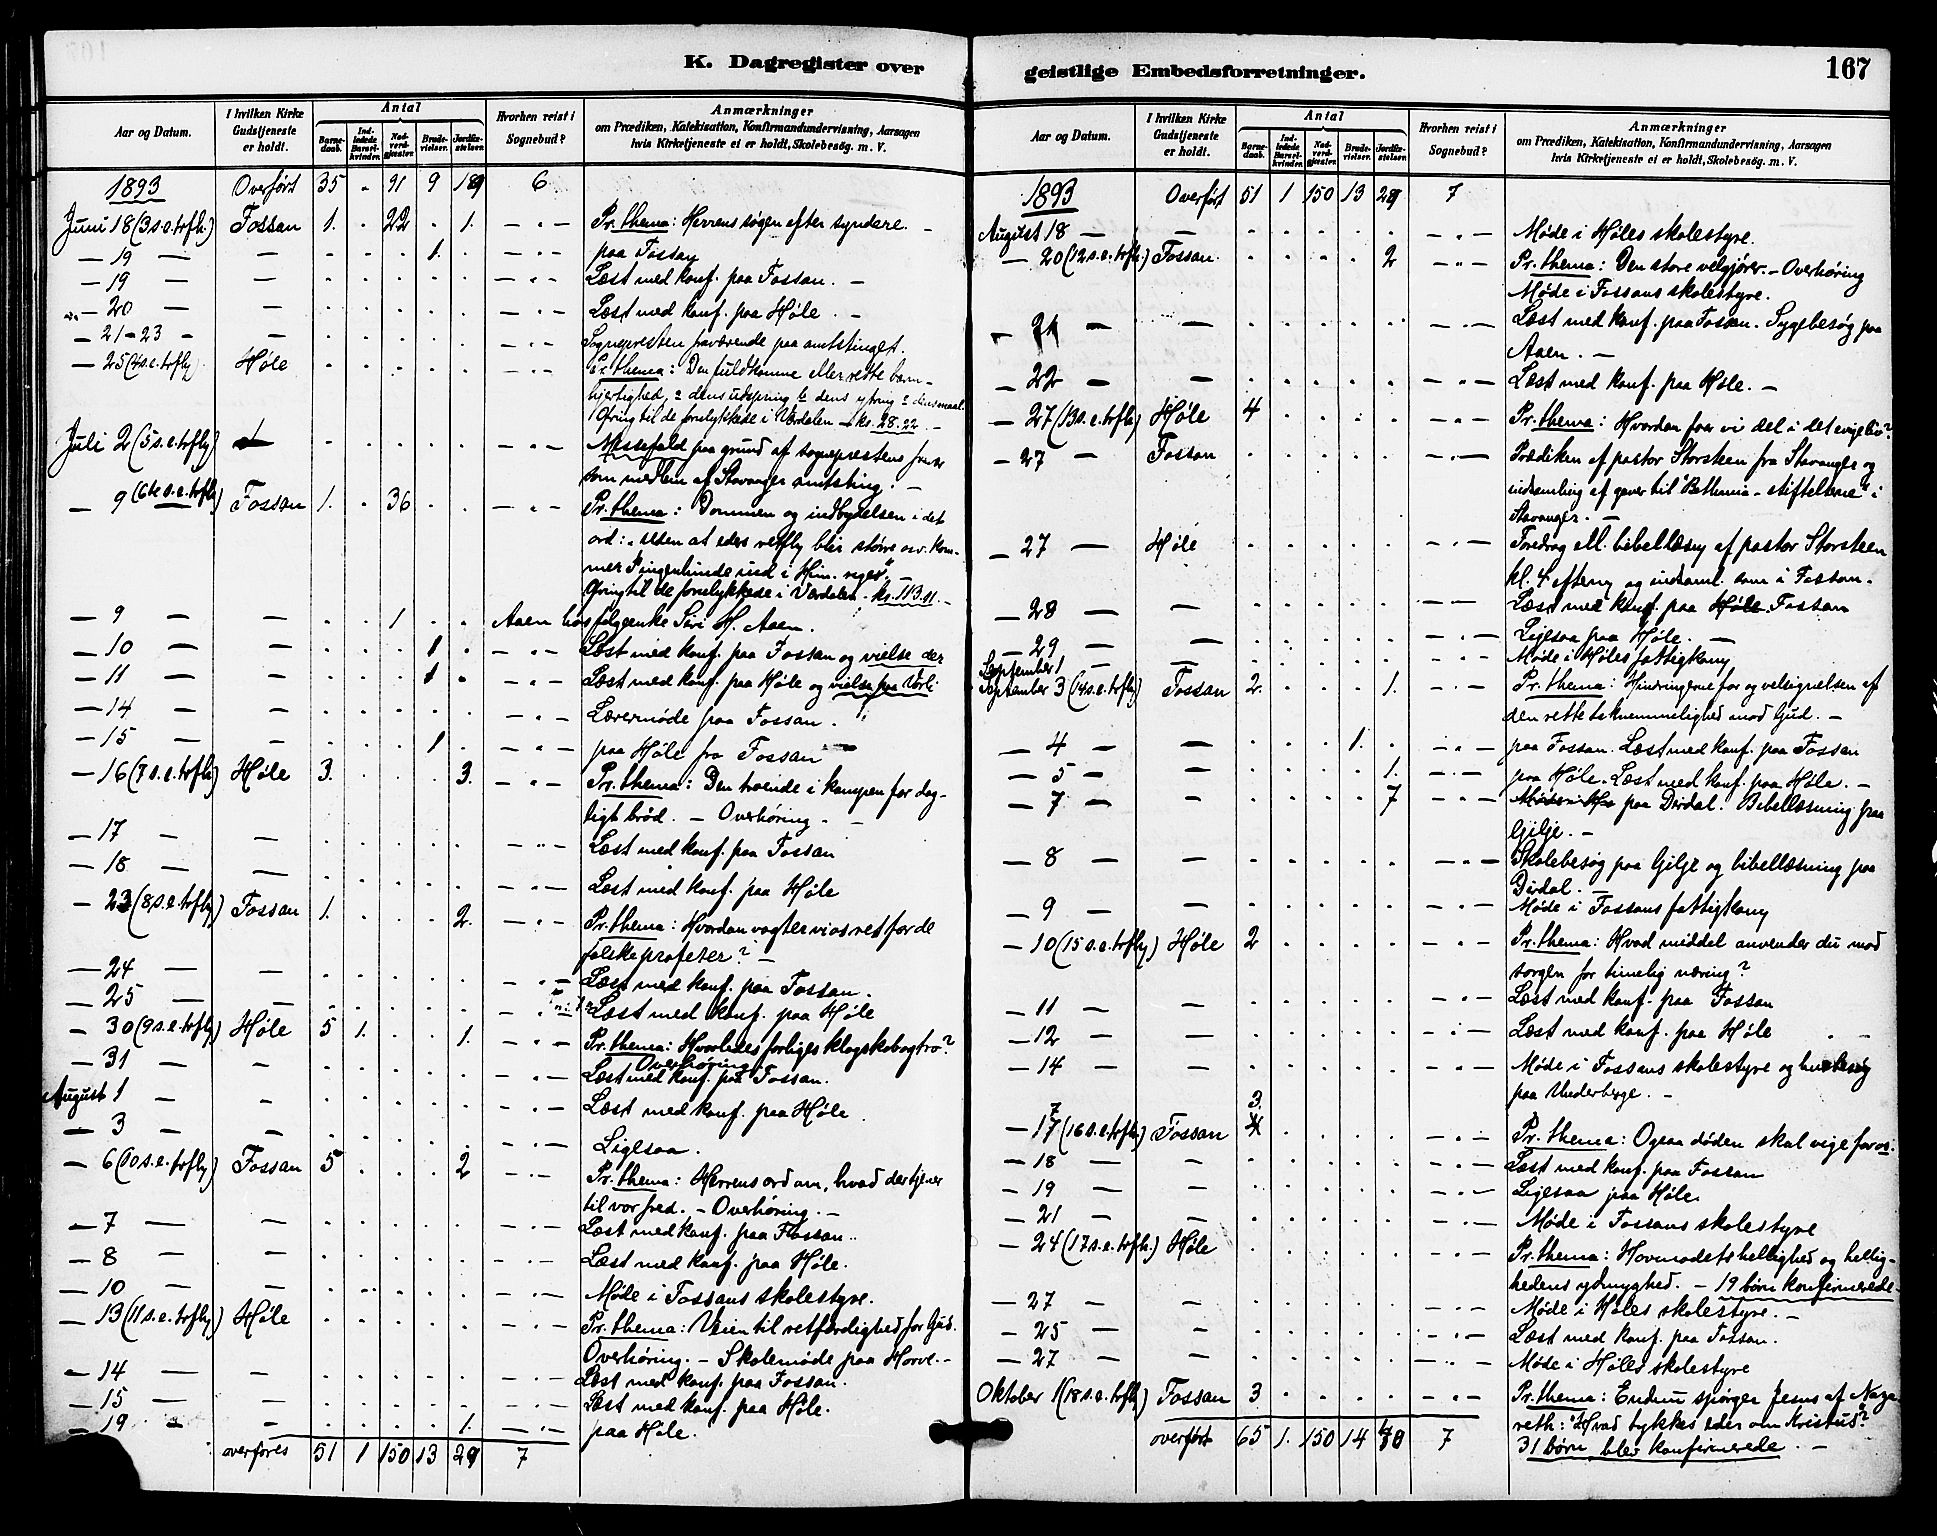 K. Dagregister over
Aar og Datum. I hvilken Kirke Gudstjeneste er holdt. Antal Barnedaab. Indledede Barselkvinder. Nadverdgjæster. Brudevielser. Jordfæstelser. Hvorhen reist i Sognebud? Anmærkninger om Prædiken, Katekisation, Konfirmandundervisning, Aarsagen hvis Kirketjeneste ei er holdt, Skolebesøg. m. V.
1893 Overført 35 - 91 9 6
Juni 18 (3 s.e. trfh.) Fossan 1. . 22 . 1. Pr. thema: Herrens søgen efter syndare. -
— 19 — — 1. paa Fossan
— 19 — — Læst med konf. paa Fossan. —
— 20 — — Læst med konf. paa Høle. -
— 21-23 - — Sognepresten fraværende paa amtstinget.
— 25 (4 s.e. trfh) Høle Pr. thema: Den fuldkomne eller rette barm-
hjertighed, dens udspring dens ytring dens maal.
Ofring til de forulykkede i Værdalen kr. 28.22. -
Juli 2 (5 s.e. trfh) Messefald paa grund af sogneprestens fravær
som medlem af Stavanger amtsting. -
— 9 (6te s.e. trfh) Fossan 1. . 36 Pr. thema: Dommen og indbydelsen i det
ord: "Uden at eders retfh blir større osv. kom-
mer I ingenlunde ind i Him. riget". -
Ofring til de forulykkede i Værdalen. kr. 113.11. -
— 9 — — 1 Aaen hos følgeenke Siri H. Aaen.
— 10 — — 1 Læst med konf. paa Fossan og vielse der
— 11 — — 1 Læst med konf. paa Høle og vielse paa
— 14 — — Lærermøde paa Fossan.
— 15 — — 1 paa Høle fra Fossan
— 16 (7 s.e. trfh) Høle 3. 3. Pr. thema: Den troende i kampen for dag-
ligt brød. - Overhøring. -
— 17 — Læst med konf. paa Fossan
— 18 — Læst med konf. paa Høle
— 23 (8 s.e. trfh) Fossan 1. 2. Pr. thema: Hvordan vogter vi os ret for de
falske profeter? -
— 24 — Læst med konf. paa Fossan.
— 25 — Læst med konf. paa Høle
— 30 (9 s.e. trfh) Høle 5 1. 1. Pr. thema: Hvorledes forliges klogskab og tro?
Overhøring
— 31 — Læst med konf. paa Fossan.
August 1 — Læst med konf. paa Høle
— 3 — Ligesaa.
— 6 (10 s.e. trfh) Fossan 5 2 Pr. thema: Herrens ord om, hvad der tjener
til vor fred. - Overhøring. -
— 7 — Læst med konf. paa Fossan.
— 8 — Læst med konf. paa Høle.
— 10 — Møde i Fossans skolestyre.
— 13 (11 s.e. trfh) Høle Pr. thema: Veien til retfærdighed for Gud.
Overhøring. - Skolemøde paa Horve. -
— 14 — Læst med konf. paa Fossan.
— 15 — Læst med konf. paa Høle.
— 19 — 1. paa Høle.
overføres 51 1 150 13 29 7
geistlige Embedsforretninger. 167
Aar og Datum. I hvilken Kirke Gudstjeneste er holdt. Antal Barnedaab. Indledede Barselkvinder. Nadverdgjæster. Brudevielser. Jordfæstelser. Hvorhen reist i Sognebud? Anmærkninger om Prædiken, Katekisation, Konfirmandundervisning, Aarsagen hvis Kirketjeneste ei er holdt, Skolebesøg. m. V.
1893 Overført 51 1 150 13 29 7
August 18 — — Møde i Høles skolestyre.
— 20 (12 s.e. trfh.) Fossan. 2 Pr. thema: Den store velgjører. - Overhøring
Møde i Fossans skolestyre.
— 21 — — Læst med konf. paa Fossan. Sygebesøg paa
Aaen. —
— 22 — — Læst med konf. paa Høle. -
— 27 (13 s.e. trfh) Høle 4 Pr. thema: Hvordan faar vi del i det evige liv?
— 27 — Fossan Prædiken af pastor Storsteen fra Stavanger og
indsamling af gaver til "Bethania-stiftelserne" i
Stavanger. —
— 27 — Høle Foredrag ell. bibellæsng af pastor Storsteen
kl. 4 efterm og indsaml. som i Fossan.
— 28 — — Læst med konf. paa Høle Fossan
— 29 — — Ligesaa paa Høle. —
September 1 — — Møde i Høles fattigkom
September 3 (14 s.e. trfh) Fossan 2. 1. Pr. thema: Hindringerne for og velsignelsen af
den rette taknemmelighed mod Gud. -
— 4 — — 1. paa Fossan. Læst med konf. paa Fossan
— 5 — — 1. paa Høle. Læst med konf. paa Høle. -
— 7 — — 7 paa Dirdal. Bibellæsning paa
Gilje. -
— 8 — — Skolebesøg paa Gilje og bibellæsning paa
Dirdal. -
— 9 — — Møde i Fossans fattigkom
— 10 (15 s.e. trfh) Høle 2 Pr. thema: Hvad middel anvender du mod
sorgen for timelig næring?
— 11 — — Læst med konf. paa Fossan
— 12 — — Læst med konf. paa Høle
— 14 — — Møde i Fossans skolestyre og husbesøg
paa Underberge. -
— 17 (16 s.e. trfh) Fossan 3. Pr. thema: Ogsaa døden skal vige for os.
— 18 — — Læst med konf. paa Fossan
— 19 — — Ligesaa paa Høle.
— 21 — — Møde i Fossans skolestyre
— 24 (17 s.e. trfh.) Høle Pr. thema: Hovmodets hellighed og hellig-
hedens ydmyghed. - 19 børn konfirmerede.
— 27 — — Møde i Høles skolestyre. —
— 25 — — Læst med konf. paa Fossan.
— 27 — — Møde i Høles skolestyre
Oktober 1 (18 s.e. trfh) Fossan 3 Pr. thema: Endnu spørger Jesus af Naza-
reth: "Hvad tykkes eder om Kristus?"
31 børn blev konfirmerede. -
overført 65 1. 150 14 7